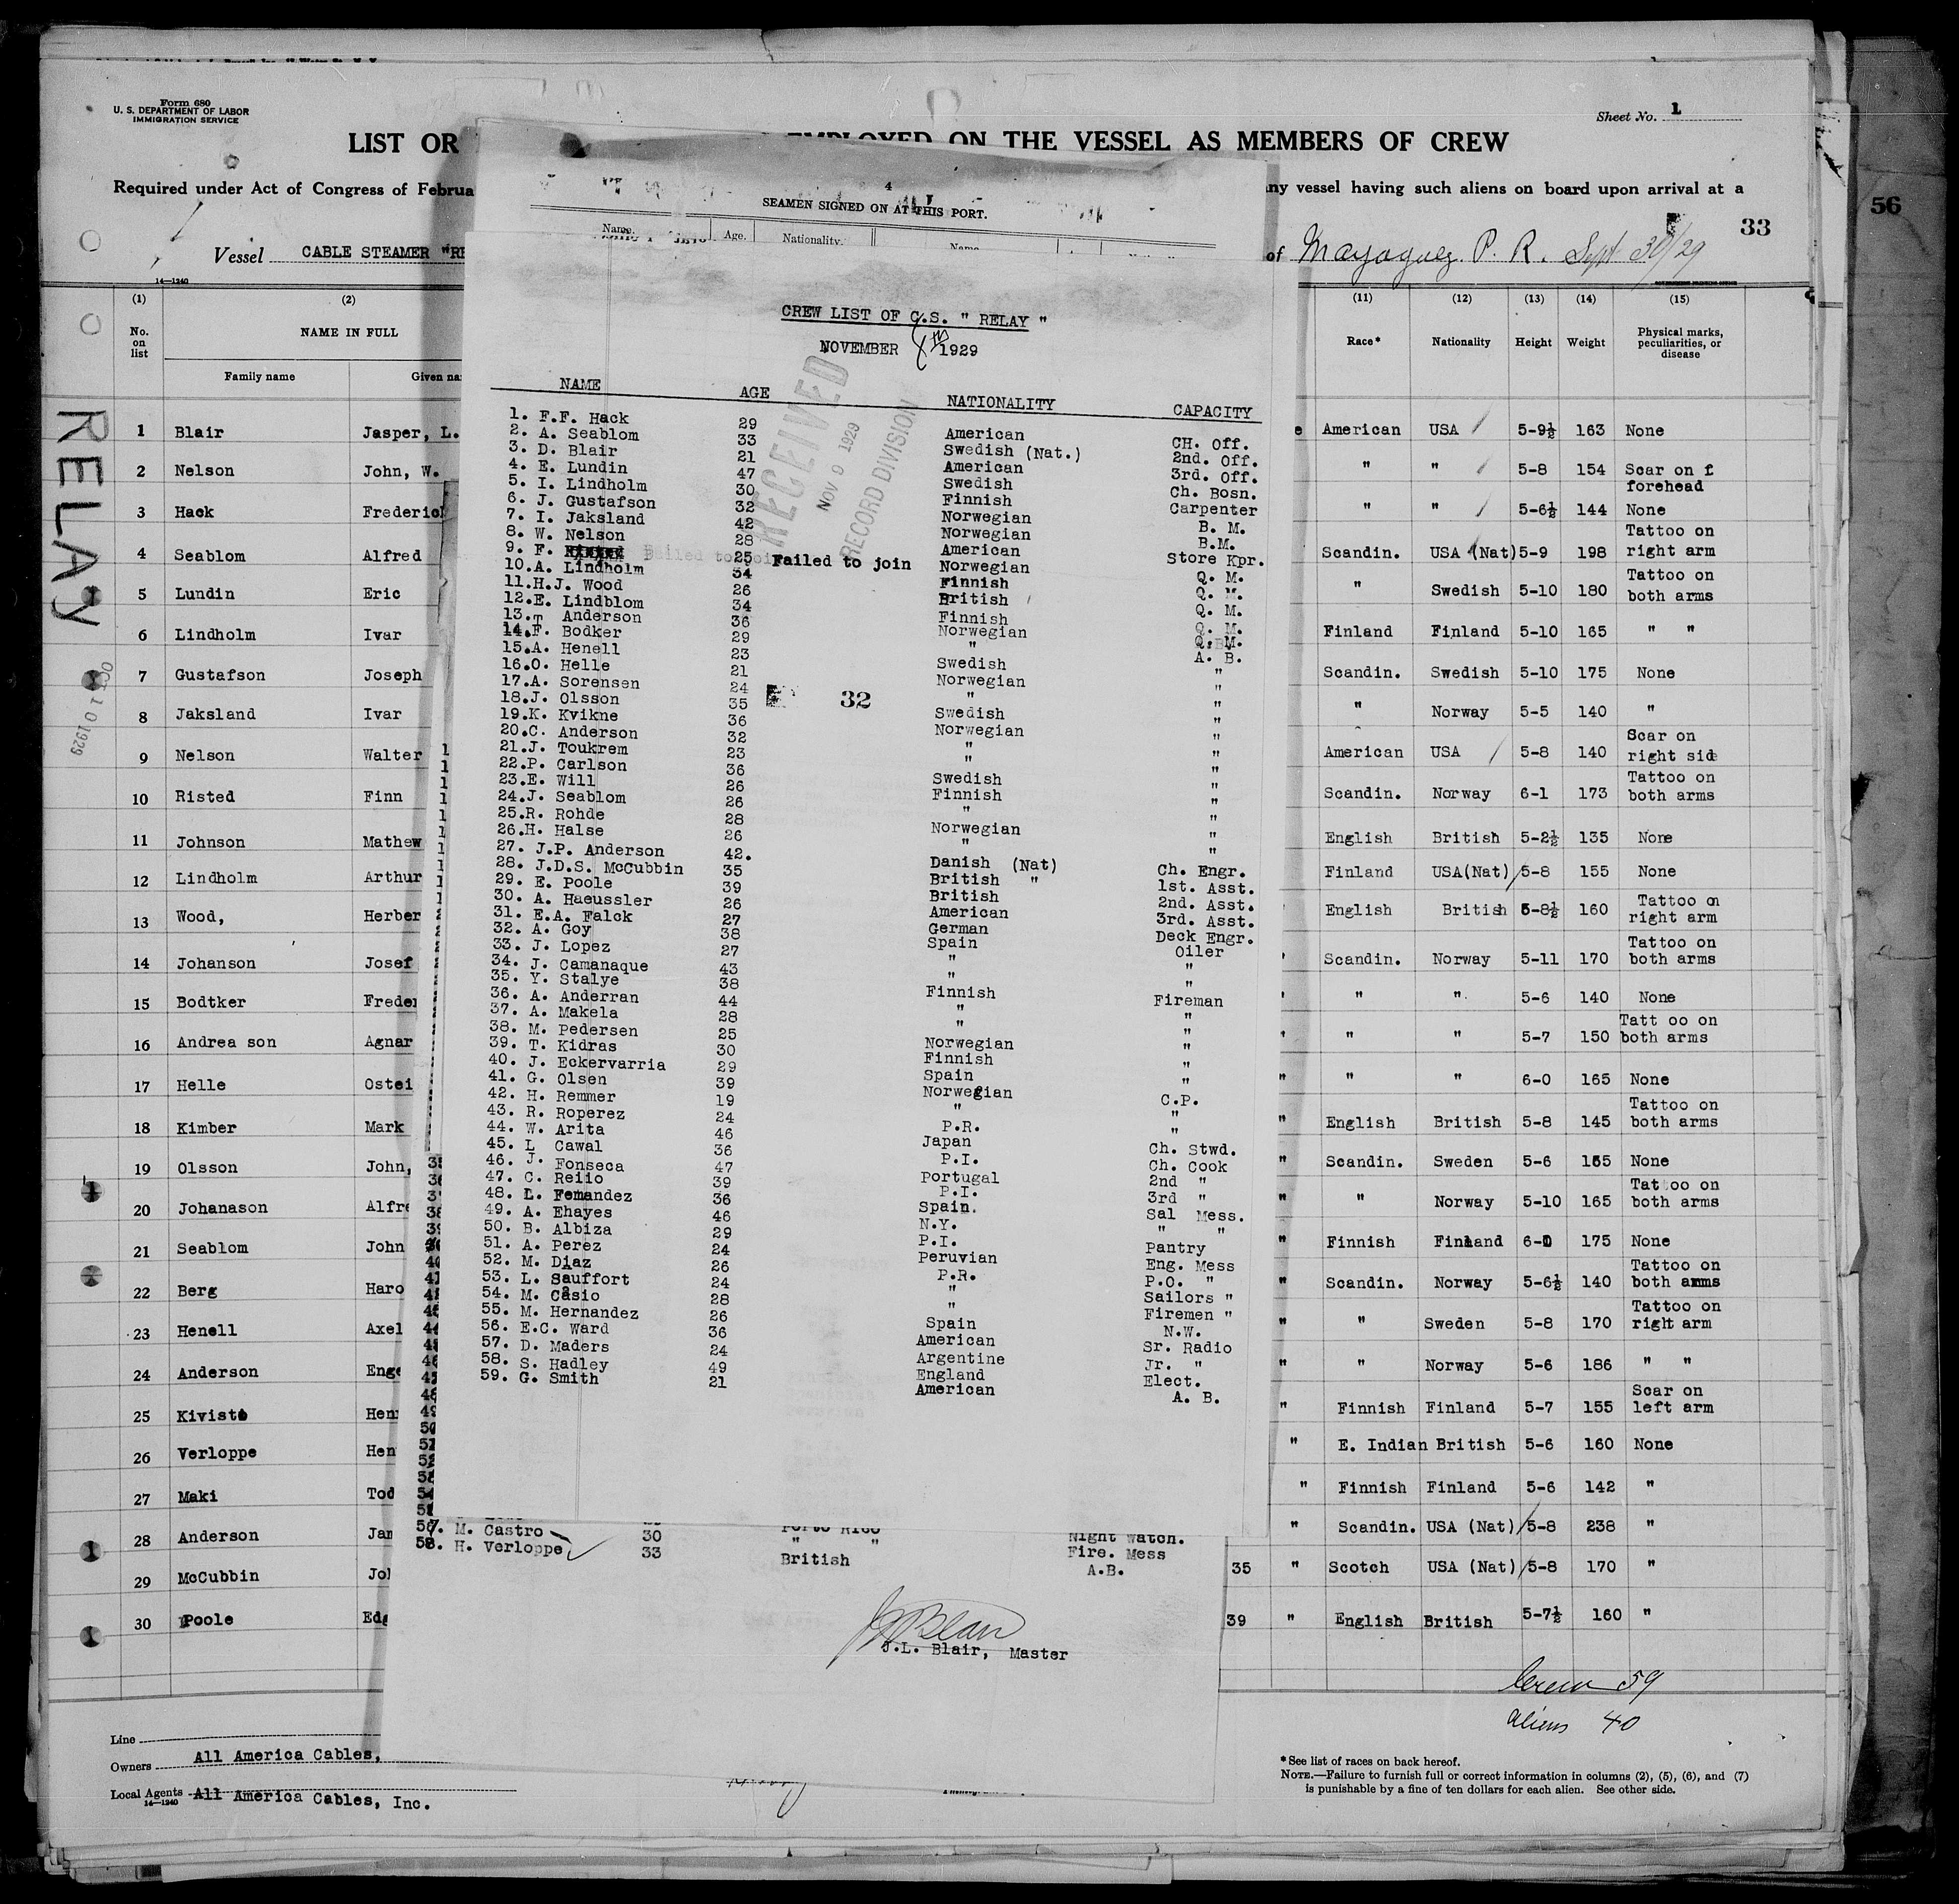 Form 680
U. S. DEPARTMENT OF LABOR
IMMIGRATION SERVICE
Sheet No. 1
LIST OR EMPLOYED ON THE VESSEL AS MEMBERS OF CREW
Required under Act of Congress of Februa ny vessel having such aliens on board upon arrival at a
56
33
Vessel CABLE STEAMER "RE of Mayaguez. P. R. Sept 30/29
14—1240
4
SEAMEN SIGNED ON AT THIS PORT.
Name. Age. Nationality. Name
(1) (2) (11) (12) (13) (14) (15)
No. on list NAME IN FULL Race* Nationality Height Weight Physical marks, peculiarities, or disease
Family name Given na
RELAY
OCT 10 1929
1 Blair Jasper, L. e American USA 5-9½ 163 None
2 Nelson John, W. " " 5-8 154 Scar on f forehead
3 Hack Frederic " " 5-6½ 144 None
4 Seablom Alfred Scandin. USA (Nat) 5-9 198 Tattoo on right arm
5 Lundin Eric " Swedish 5-10 180 Tattoo on both arms
6 Lindholm Ivar Finland Finland 5-10 165 " "
7 Gustafson Joseph Scandin. Swedish 5-10 175 None
8 Jaksland Ivar " Norway 5-5 140 "
9 Nelson Walter American USA 5-8 140 Scar on right side
10 Risted Finn Scandin. Norway 6-1 173 Tattoo on both arms
11 Johnson Mathew English British 5-2½ 135 None
12 Lindholm Arthur Finland USA(Nat) 5-8 155 None
13 Wood, Herber English British 5-8½ 160 Tattoo on right arm
14 Johanson Josef Scandin. Norway 5-11 170 Tattoo on both arms
15 Bodtker Freder " " 5-6 140 None
16 Andrea son Agnar " " 5-7 150 Tatt oo on both arms
17 Helle Ostei " " " 6-0 165 None
18 Kimber Mark " English British 5-8 145 Tattoo on both arms
19 Olsson John, " Scandin. Sweden 5-6 155 None
20 Johanason Alfre " " Norway 5-10 165 Tattoo on both arms
21 Seablom John " Finnish Finland 6-0 175 None
22 Berg Haro " Scandin. Norway 5-6½ 140 Tattoo on both arms
23 Henell Axel " " Sweden 5-8 170 Tattoo on right arm
24 Anderson Enge " " Norway 5-6 186 " "
25 Kivisto Hen " Finnish Finland 5-7 155 Scar on left arm
26 Verloppe Hen " E. Indian British 5-6 160 None
27 Maki Tod " Finnish Finland 5-6 142 "
28 Anderson Jam " Scandin. USA (Nat) 5-8 238 "
29 McCubbin Joh 35 " Scotch USA (Nat) 5-8 170 "
30 Poole Edg 39 " English British 5-7½ 160 "
Crew 59
aliens 40
Line
Owners All America Cables,
Local Agents All America Cables, Inc.
14—1240
*See list of races on back hereof.
NOTE.—Failure to furnish full or correct information in columns (2), (5), (6), and (7)
is punishable by a fine of ten dollars for each alien. See other side.
CREW LIST OF C.S. " RELAY "
NOVEMBER 8th 1929
RECEIVED
NOV 9 1929
RECORD DIVISION
32
NAME AGE NATIONALITY CAPACITY
1. F.F. Hack 29 American CH. Off.
2. A. Seablom 33 Swedish (Nat.) 2nd. Off.
3. D. Blair 21 American 3rd. Off.
4. E. Lundin 47 Swedish Ch. Bosn.
5. I. Lindholm 30 Finnish Carpenter
6. J. Gustafson 32 Norwegian B. M.
7. I. Jaksland 42 Norwegian B.M.
8. W. Nelson 28 American Store Kpr.
9. F. Risted 25 Failed to join Norwegian Q. M.
10. A. Lindholm 34 Finnish Q. M.
11. H.J. Wood 26 British Q. M.
12. E. Lindblom 34 Finnish Q. M.
13. T Anderson 36 Norwegian Q. M.
14. F. Bodker 29 " A. B.
15. A. Henell 23 Swedish "
16. O. Helle 21 Norwegian "
17. A. Sorensen 24 " "
18. J. Olsson 35 Swedish "
19. K. Kvikne 36 Norwegian "
20. C. Anderson 32 " "
21. J. Toukrem 23 " "
22. P. Carlson 36 Swedish "
23. E. Will 26 Finnish "
24. J. Seablom 26 " "
25. R. Rohde 28 Norwegian "
26. H. Halse 26 " "
27. J.P. Anderson 42. Danish (Nat) Ch. Engr.
28. J.D.S. McCubbin 35 British " 1st. Asst.
29. E. Poole 39 British 2nd. Asst.
30. A. Haeussler 26 American 3rd. Asst.
31. E.A. Falck 27 German Deck Engr.
32. A. Goy 38 Spain Oiler
33. J. Lopez 27 " "
34. J. Camanaque 43 " "
35. Y. Stalye 38 Finnish Fireman
36. A. Anderran 44 " "
37. A. Makela 28 " "
38. M. Pedersen 25 Norwegian "
39. T. Kidras 30 Finnish "
40. J. Eckervarria 29 Spain "
41. G. Olsen 39 Norwegian C.P.
42. H. Remmer 19 " "
43. R. Roperez 24 P.R. "
44. W. Arita 46 Japan Ch. Stwd.
45. L Cawal 36 P.I. Ch. Cook
46. J. Fonseca 47 Portugal 2nd "
47. C. Reiio 39 P.I. 3rd "
48. L. Fernandez 36 Spain. Sal Mess.
49. A. Ehayes 46 N.Y. " "
50. B. Albiza 29 P.I. Pantry
51. A. Perez 24 Peruvian Eng. Mess
52. M. Diaz 26 P.R. P.O. "
53. L. Sauffort 24 " Sailors "
54. M. Casio 28 " Firemen "
55. M. Hernandez 26 Spain N.W.
56. E.C. Ward 36 American Sr. Radio
57. D. Maders 24 Argentine Jr. "
58. S. Hadley 49 England Elect.
59. G. Smith 21 American A. B.
Porto Rico Night Watch.
57. M. Castro 30 " " Fire. Mess
58. H. Verloppe 33 British A.B.
J L Blair
J.L. Blair, Master